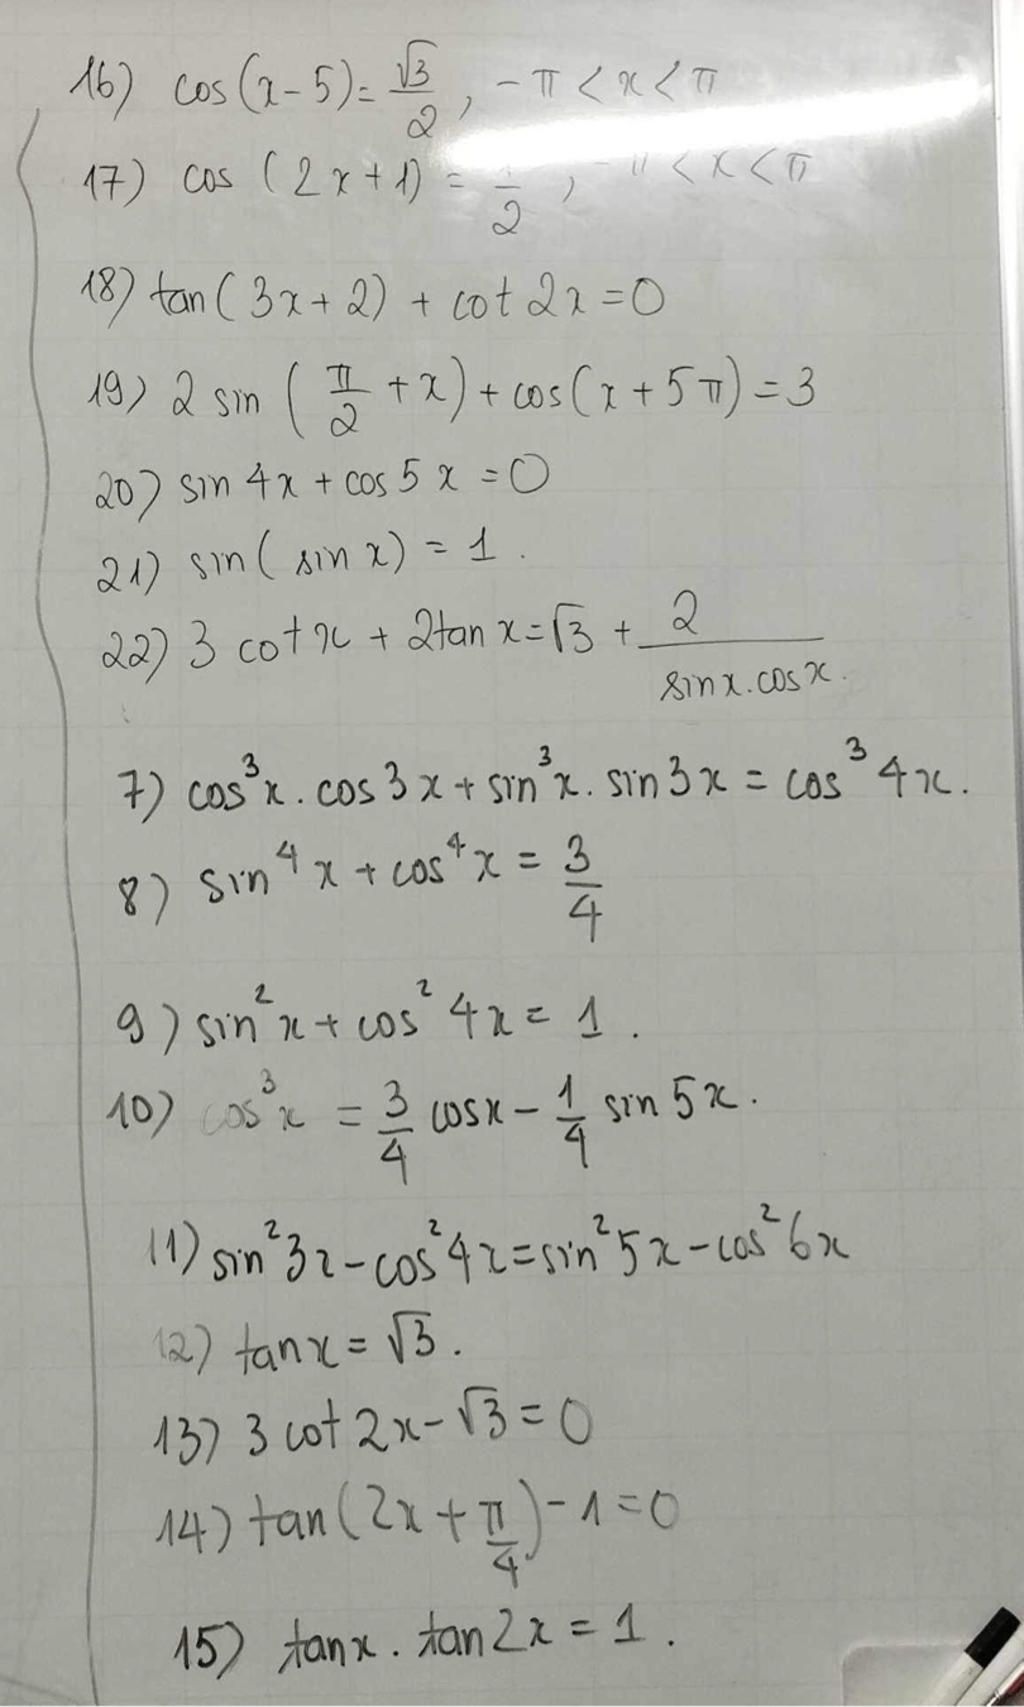 16) cos(x-5)=√3/2, -π<x<π
17) cos (2x+1) = 1/2, -π<x<π
18) tan(3x+2) + cot2x=0
19) 2 sin (π/2 +x)+cos(x+5π)=3
20) sin4x+cos5x=0
21) sin(sinx)=1.
22) 3 cotx + 2tanx=√3+ 2/sinx.cosx.
7) cos³x.cos3x+sin³x.sin3x=cos³4x.
8) sin⁴x+cos⁴x=3/4
9) sin²x+cos²4x=1.
10) cos³x = 3/4 cosx - 1/4 sin5x.
11) sin²3x-cos²4x=sin²5x-cos²6x
12) tanx=√3.
13) 3cot2x-√3=0
14) tan(2x+π/4)-1=0
15) tanx.tan2x=1.